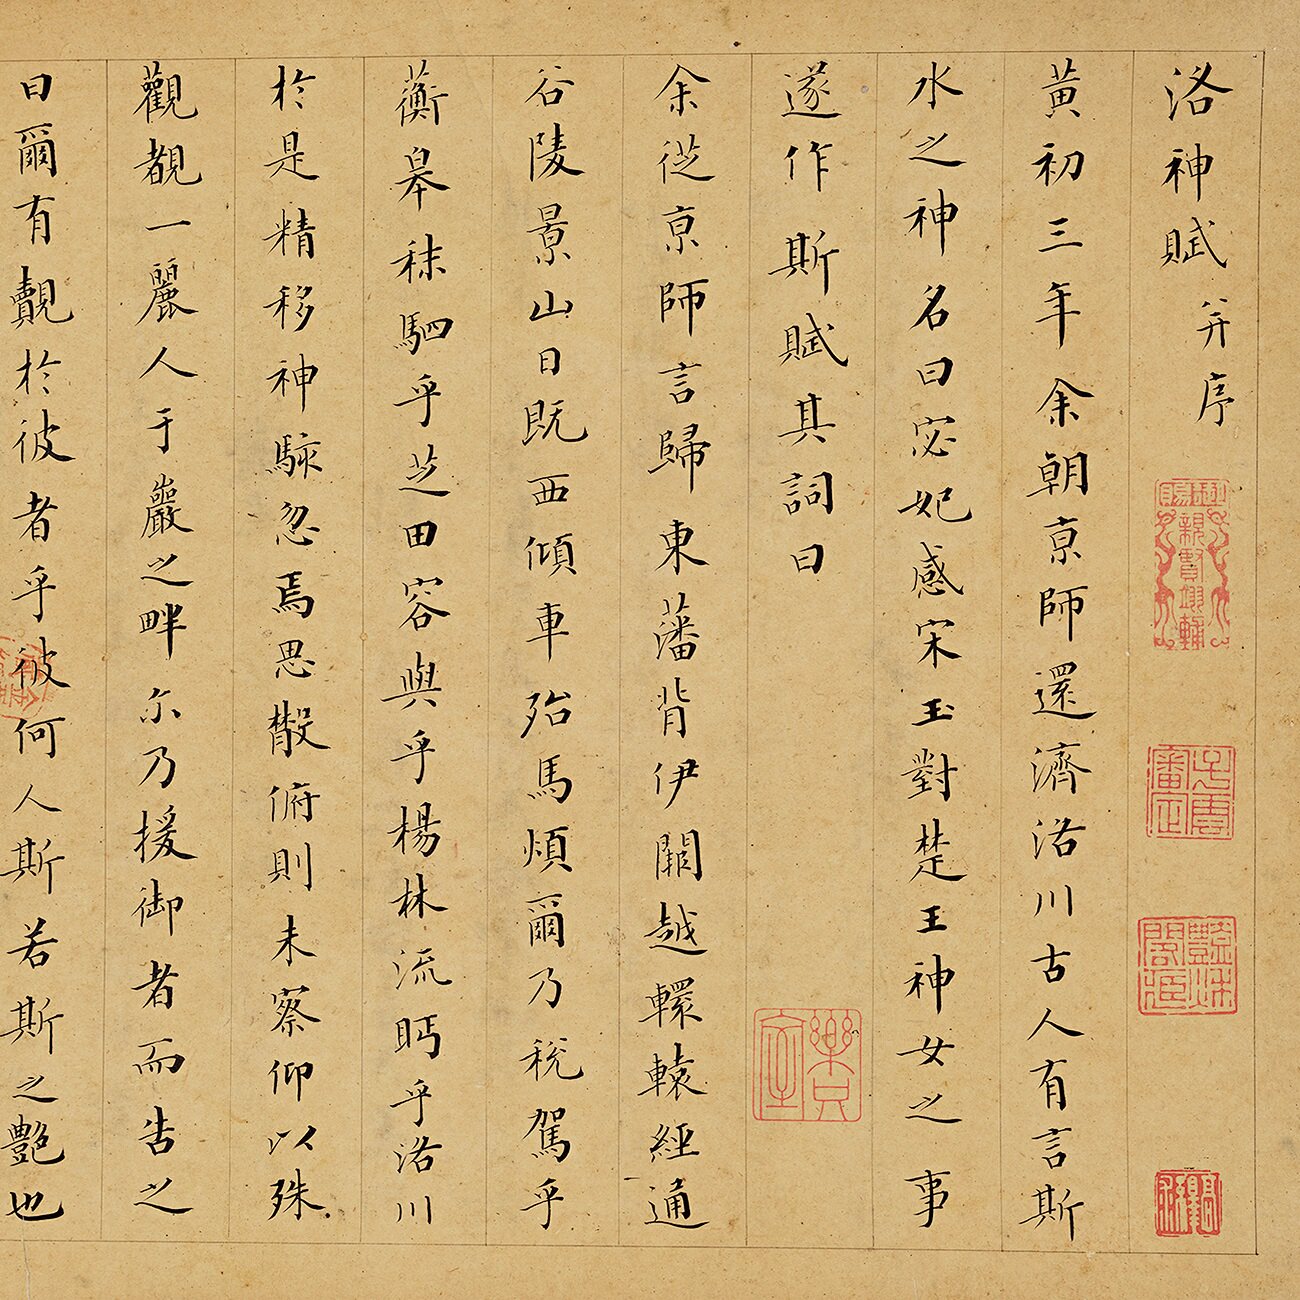 洛神賦 并序
黃初三年余朝京師還濟洛川古人有言斯
水之神名曰宓妃感宋玉對楚王神女之事
遂作斯賦其詞曰
余從京師言歸東藩背伊闕越轘轅經通
谷陵景山日既西傾車殆馬煩爾乃稅駕乎
蘅皋秣駟乎芝田容與乎楊林流眄乎洛川
於是精移神駭忽焉思散俯則未察仰以殊
觀覩一麗人于巖之畔尒乃援御者而告之
曰爾有覿於彼者乎彼何人斯若斯之艷也
樂室